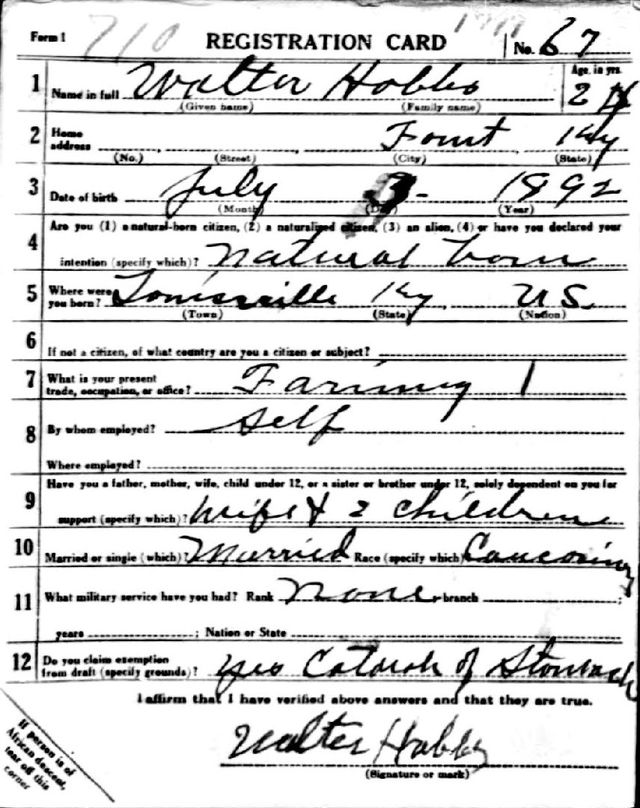 Form 1 710 REGISTRATION CARD No. 67
1 Name in full Walter Hobbs Age, in yrs.
(Given name) (Family name) 24
2 Home address Fount Ky
(No.) (Street) (City) (State)
3 Date of birth July 3 1892
(Month) (Day) (Year)
4 Are you (1) a natural-born citizen, (2) a naturalized citizen, (3) an alien, (4) or have you declared your
intention (specify which)? Natural born
5 Where were you born? Louisville Ky US
(Town) (State) (Nation)
6 If not a citizen, of what country are you a citizen or subject?
7 What is your present trade, occupation, or office? Farming 1
8 By whom employed? Self
Where employed?
9 Have you a father, mother, wife, child under 12, or a sister or brother under 12, solely dependent on you for
support (specify which)? Wife & 2 children
10 Married or single (which)? Married Race (specify which)
11 What military service have you had? Rank None branch ;
years ; Nation or State
12 Do you claim exemption from draft (specify grounds)? yes Catarah of Stomach
I affirm that I have verified above answers and that they are true.
Walter Hobbs
(Signature or mark)
If person is of
African descent,
tear off this
corner